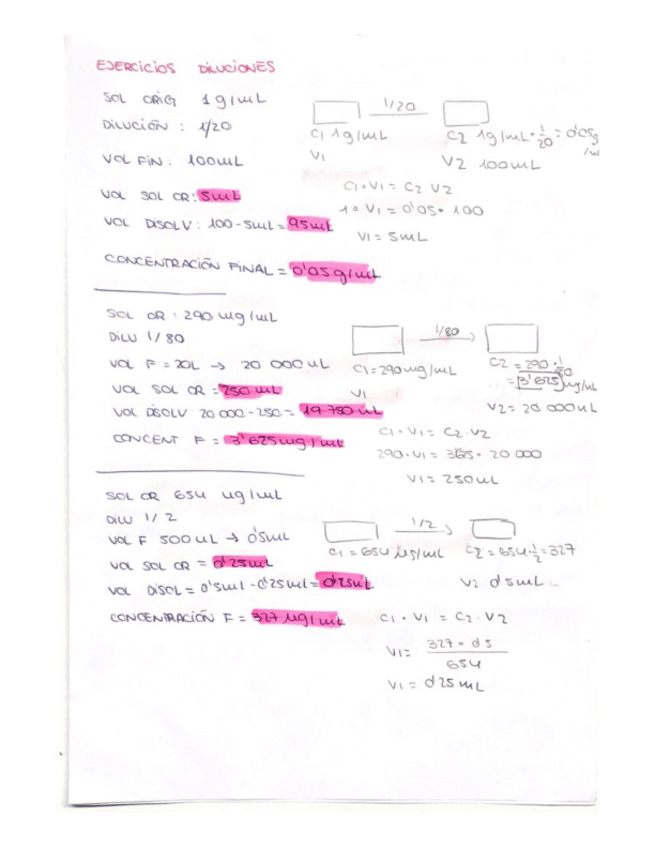 EJERCICIOS DILUCIONES
SOL ORIG 1g/mL
DILUCIÓN : 1/20
VOL FIN : 100mL
VOL SOL OR: 5mL
VOL DISOLV: 100-5mL = 95mL
CONCENTRACIÓN FINAL = 0'05g/mL
1/20
C1 1g/mL
V1
C2 1g/mL · 1/20 = 0'05g/mL
V2 100mL
C1 · V1 = C2 V2
1 · V1 = 0'05 · 100
V1 = 5mL
SOL OR : 290 mg/mL
DILU 1/80
VOL F = 20L → 20 000 mL
VOL SOL OR = 250 mL
VOL DISOLV 20 000-250 = 19 750 mL
CONCENT F = 3'625 mg/mL
1/80
C1 = 290mg/mL
V1
C2 = 290 · 1/80
= 3'625 mg/mL
V2 = 20 000mL
C1 · V1 = C2 · V2
290 · V1 = 3625 · 20 000
V1 = 250mL
SOL OR 654 ug/mL
DILU 1/2
VOL F 500uL → 0'5mL
VOL SOL OR = 0'25mL
VOL DISOL = 0'5mL - 0'25mL = 0'25mL
CONCENTRACIÓN F = 327 µg/mL
1/2
C1 = 654 µg/mL
C2 = 654 · 1/2 = 327
V2 0'5mL
C1 · V1 = C2 · V2
V1 = 327 · 0'5
654
V1 = 0'25mL